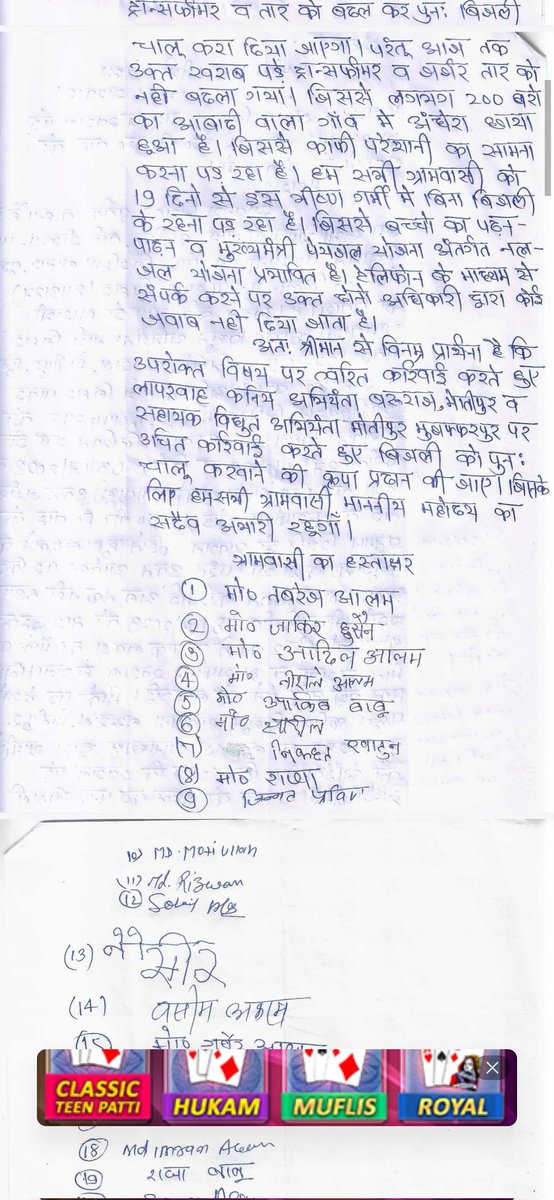 ट्रान्सफॉमर व तार को बदल कर पुनः बिजली
चालू करा दिया जाएगा। परंतु आज तक
उक्त खराब पड़े ट्रान्सफॉमर व जर्जर तार को
नही बदला गया। जिससे लगभग 200 घरो
का आबादी वाला गाँव मे अंधेरा छाया
हुआ है। जिससे काफी परेशानी का सामना
करना पड़ रहा है। हम सभी ग्रामवासी को
19 दिनो से इस भीषण गर्मी मे बिना बिजली
के रहना पड़ रहा है। जिससे बच्चो का पठन-
पाठन व मुख्यमंत्री पेयजल योजना अंतर्गत नल-
जल योजना प्रभावित है। टेलिफोन के माध्यम से
संपर्क करने पर उक्त दोनो अधिकारी द्वारा कोई
जवाब नही दिया जाता है।
अतः श्रीमान से विनम्र प्रार्थना है कि
उपरोक्त विषय पर त्वरित कारवाई करते हुए
लापरवाह कनिय अभियंता बरूराज, मोतीपुर व
सहायक विद्युत अभियंता मोतीपुर मुजफ्फरपुर पर
उचित कारवाई करते हुए बिजली को पुनः
चालू करवाने की कृपा प्रदान की जाए। जिसके
लिए हमसभी ग्रामवासी माननीय महोदय का
सदैव अभारी रहूगाँ।
ग्रामवासी का हस्ताक्षर
① मो० तबरेज आलम
② मो० जाकिर हुसैन
③ मो० आदिल आलम
④ मो० आलम
⑤ मो० आकिब बाबू
⑥ मो०
(7) निकहत खातुन
(8) मो० राजा
⑨ जिन्नत प्रविण
10) MD. Motiullah
(11) Md. Rizwan
⑫
(13)
(14) वसीम अकरम
(15) मो०
CLASSIC TEEN PATTI HUKAM MUFLIS ROYAL
⑱ Md Imran Alam
⑲ राजा बाबू